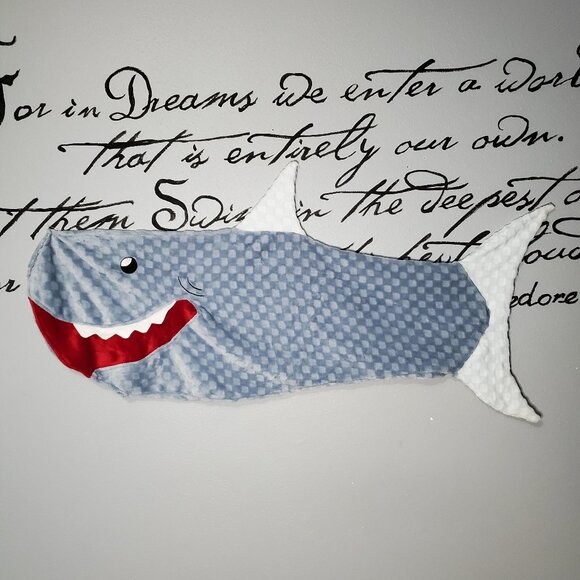 For in Dreams we enter a worl
that is entirely our own.
t them Swim in the deepest o
r he highest cloud
edore